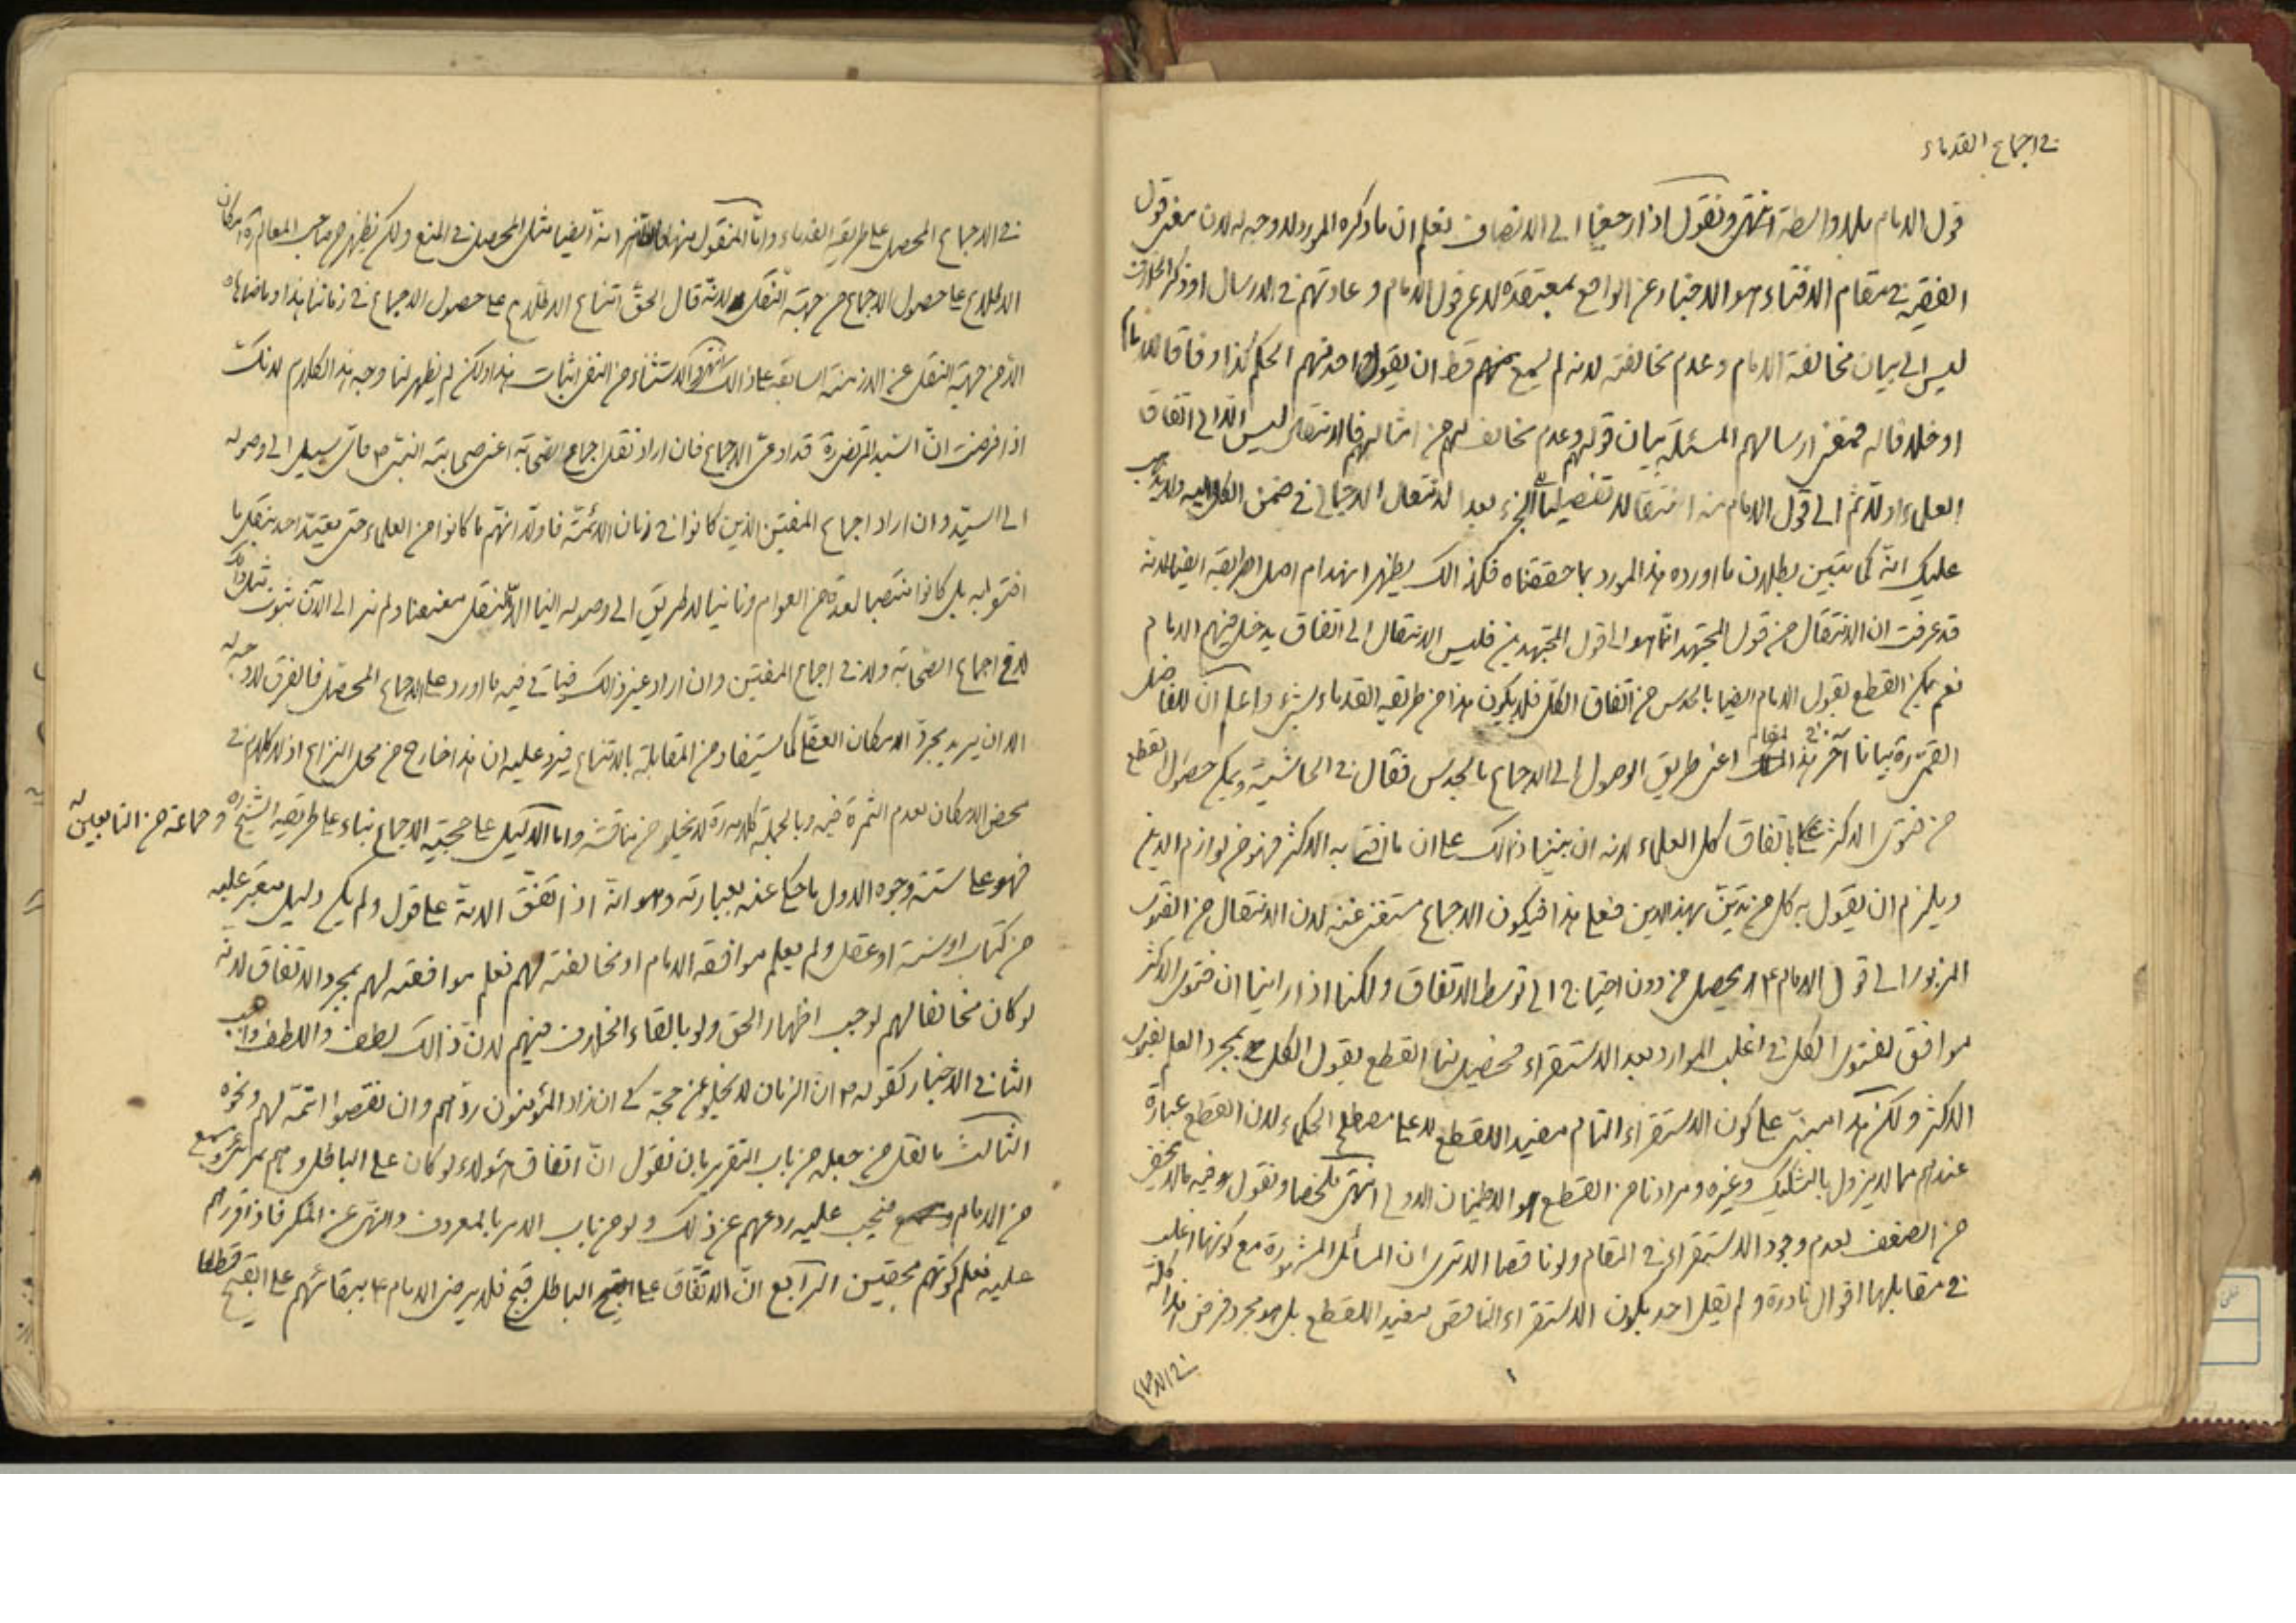 في اجماع القدماء
قول الامام بلا واسطة انتهى ونقول اذا رجعنا الى الانصاف نعلم ان ما ذكره المورد لا وجه له لان معنى قول
الفقيه في مقام الافتاء هو الاخبار عن الواقع بمعتقده لا عن قول الامام وعادتهم في الارسال او ذكر الخلاف
ليس الى بيان مخالفة الامام وعدم مخالفته لانه لم يسمع منهم قط ان يقول احد منهم الحكم كذا وفاقا للامام
او خلافا له فمعنى ارسالهم المسئلة بيان قولهم وعدم مخالف لهم من امثالهم فالانتقال ليس الا الى اتفاق
العلماء اولا ثم الى قول الامام منه انتقالا تفصيليا بعد الانتقال الاجمالي في ضمن الكل اليه ولا يذهب
عليك انه كما تبين بطلان ما اورده هذا المورد بما حققناه فكذالك يظهر انهدام اصل طريقه ايضا لانه
قد عرفت ان الانتقال من قول المجتهد انما هو الى قول المجتهدين فليس الانتقال الى اتفاق يدخل فيهم الامام
نعم يمكن القطع بقول الامام ايضا بالحدس من اتفاق الكل فلا يكون هذا من طريقه القدماء بشيء واعلم ان للفاضل
القمي ره بيانا آخر في هذا المقام اعني طريق الوصول الى الاجماع بالحدس فقال في الحاشية ويمكن حصول القطع
من فتوى الاكثر باتفاق كل العلماء لانه ان بيننا ذالك على ان ما افتى به الاكثر فهو من لوازم الدين
ويلزم ان يقول به كل من تدين بهذا الدين فعلى هذا فيكون الاجماع مستغنى عنه لان الانتقال من الفتوى
المزبور الى قول الامام ع يحصل من دون احتياج الى توسط الاتفاق ولكنا اذا راينا ان فتوى الاكثر
موافق لفتوى الكل في اغلب الموارد بعد الاستقراء فيحصل لنا القطع بقول الكل بمجرد العلم بفتوى
الاكثر ولكن هذا مبني على كون الاستقراء التام مفيد اللقطع لا على مصطلح الحكماء لان القطع عبارة
عندهم مما لا يزول بالتشكيك وغيره ومرادنا من القطع هو الاطمينان الاولى انتهى ملخصا ونقول وفيه ما لا يخفى
من الضعف لعدم وجود الاستقراء في المقام ولو ناقصا الا ترى ان المسائل المشهورة مع كونها اغلب
في مقابلها اقوال نادرة ولم يقل احد بكون الاستقراء الناقص مفيد اللقطع بل هو مجرد فرض هذا كله
في الاجماع
في الاجماع المحصل على طريقة القدماء واما المنقول منها انه ايضا مثل المحصل في المنع ولكن يظهر من صاحب المعالم ره امكان
الاطلاع على حصول الاجماع من جهة النقل لانه قال الحق امتناع الاطلاع على حصول الاجماع في زماننا هذا وما ضاهاه
الا من جهة النقل عن الازمنة السابقة على ذالك انتهى والاستثناء من النفي اثبات هذا ولكن لم يظهر لنا وجه هذا الكلام لانك
اذا فرضت ان السيد المرتضى ره قد ادعى الاجماع فان اراد نقل اجماع الصحابة اعني صحابة النبي ص فاي سبيل الى وصوله
الى السيد وان اراد اجماع المفتين الذين كانوا في زمان الائمة فاولا انهم ما كانوا من العلماء حتى يعتد احد بنقل ما
افتوا به بل كانوا منتصبا لعدة من العوام وثانيا لا طريق الى وصوله الينا الا بالنقل معنعنا ولم نر الى الآن ثبوت مثل ذالك
لا في اجماع الصحابة ولا في اجماع المفتين وان اراد غير ذالك فياتي فيه ما اورد على الاجماع المحصل فالفرق لا وجه له
الا ان يريد مجرد الامكان العقلي كما يستفاد من المقابلة بالامتناع فيرد عليه ان هذا خارج من محل النزاع اذ لا كلام في
محض الامكان لعدم الثمرة فيه وبالجملة كلامه ره لا يخلو من مناقشة واما الدليل على حجية الاجماع بناء على طريقة الشيخ ره وجماعة من التابعين له
فهو على ستة وجوه الاول ما حكي عنه بعبارته وهو انه اذا اتفق الامة على قول ولم يكن دليل معتبر عليه
من كتاب او سنة او عقل ولم يعلم موافقه الامام او مخالفته لهم نعلم موافقته لهم بمجرد الاتفاق لانه
لو كان مخالفا لهم لوجب اظهار الحق ولو بالقاء الخلاف فيهم لان ذالك لطف واللطف واجب
الثاني الاخبار كقوله ع ان الزمان لا يخلو عن حجة كي ان زاد المؤمنون ردهم وان نقصوا اتمه لهم ونحوه
الثالث ما نقل من جعله من باب التقرير بان نقول ان اتفاق هؤلاء لو كان على الباطل وهم بمرئى ومسمع
من الامام فيجب عليه ردعهم عن ذلك ولو من باب الامر بالمعروف والنهي عن المنكر فاذا قررهم
عليه فعلم كونهم محقين الرابع ان الاتفاق على الباطل قبيح فلا يرضى الامام ع ببقائهم على القبيح قطعا